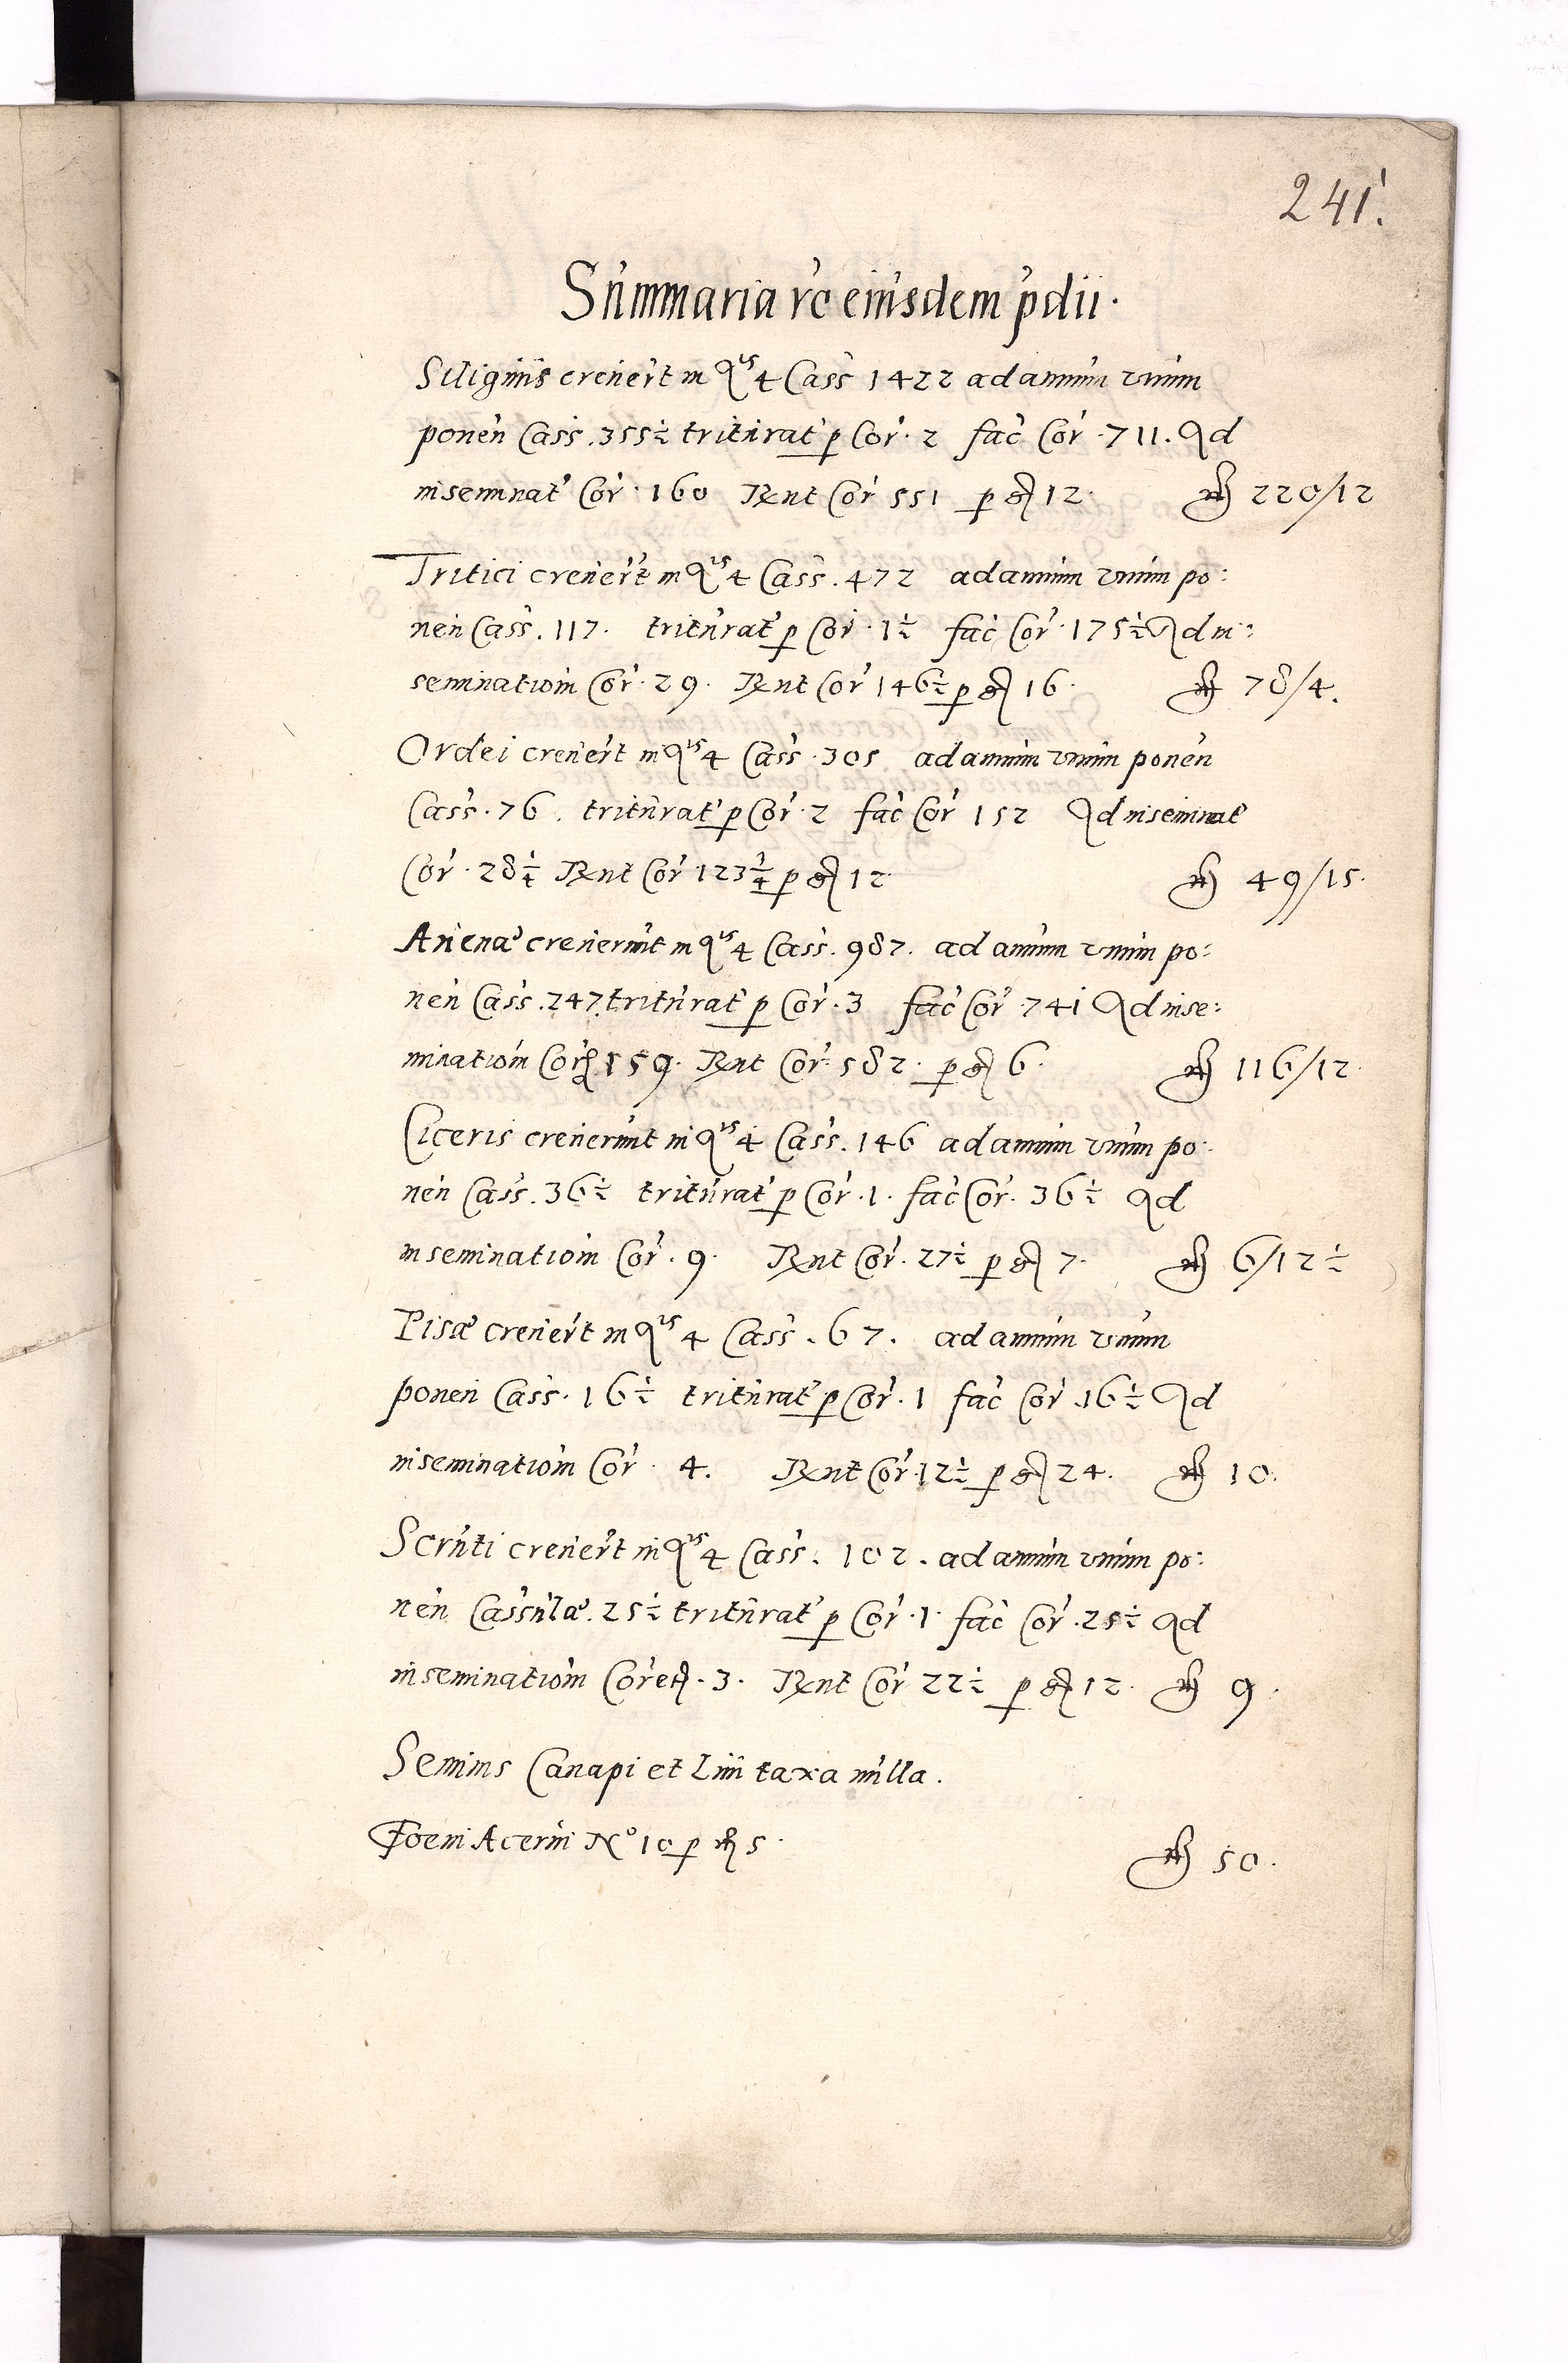 241.
Summaria rc eiusdem pdii.
Siliginis creuert in q̃is 4 Cass 1422 ad annum vnum
ponen Cass. 355½ triturat p Cor. 2 fac Cor. 711. Qd
inseminat Cor. 160 Rnt Cor 551 p gr 12. fl 220/12
Tritici creuert in q̃is 4 Cass. 472 ad annum vnum po:
nen Cass. 117. triturat p Cor. 1½ fac Cor. 175½ Qd in:
seminatiom Cor. 29. Rnt Cor 146½ p gr 16. fl 78/4.
Ordei creuert in q̃is 4 Cass. 305 ad annum vnum ponen
Cass. 76. triturat p Cor. 2 fac Cor 152 Qd inseminat
Cor. 28¼ Rnt Cor 123¾ p gr 12. fl 49/15.
Auenæ creuerunt in q̃is 4 Cass. 987. ad annum vnum po:
nen Cass. 247. triturat p Cor. 3 fac Cor. 741 Qd inse:
minatiom Cor 159. Rnt Cor. 582. p gr 6. fl 116/12.
Ciceris creuerunt in q̃is 4 Cass. 146 ad annum vnum po:
nen Cass. 36½ triturat p Cor. 1. fac Cor. 36½ Qd
inseminatiom Cor. 9. Rnt Cor. 27½ p gr 7. fl 6/12½
Pisæ creuert in q̃is 4 Cass. 67. ad annum vnum
ponen Cass. 16½ triturat p Cor. 1 fac Cor. 16½ Qd
inseminatiom Cor. 4. Rnt Cor. 12½ p gr 24. fl 10.
Scruti creuert in q̃is 4 Cass. 102. ad annum vnum po:
nen Cassulæ. 25½ triturat p Cor. 1. fac Cor. 25½ Qd
inseminatiom Coret. 3. Rnt Cor 22½ p gr 12. fl 9.
Seminis Canapi et Lini taxa nulla.
Foeni Acerui No 10 p fl 5. fl 50.